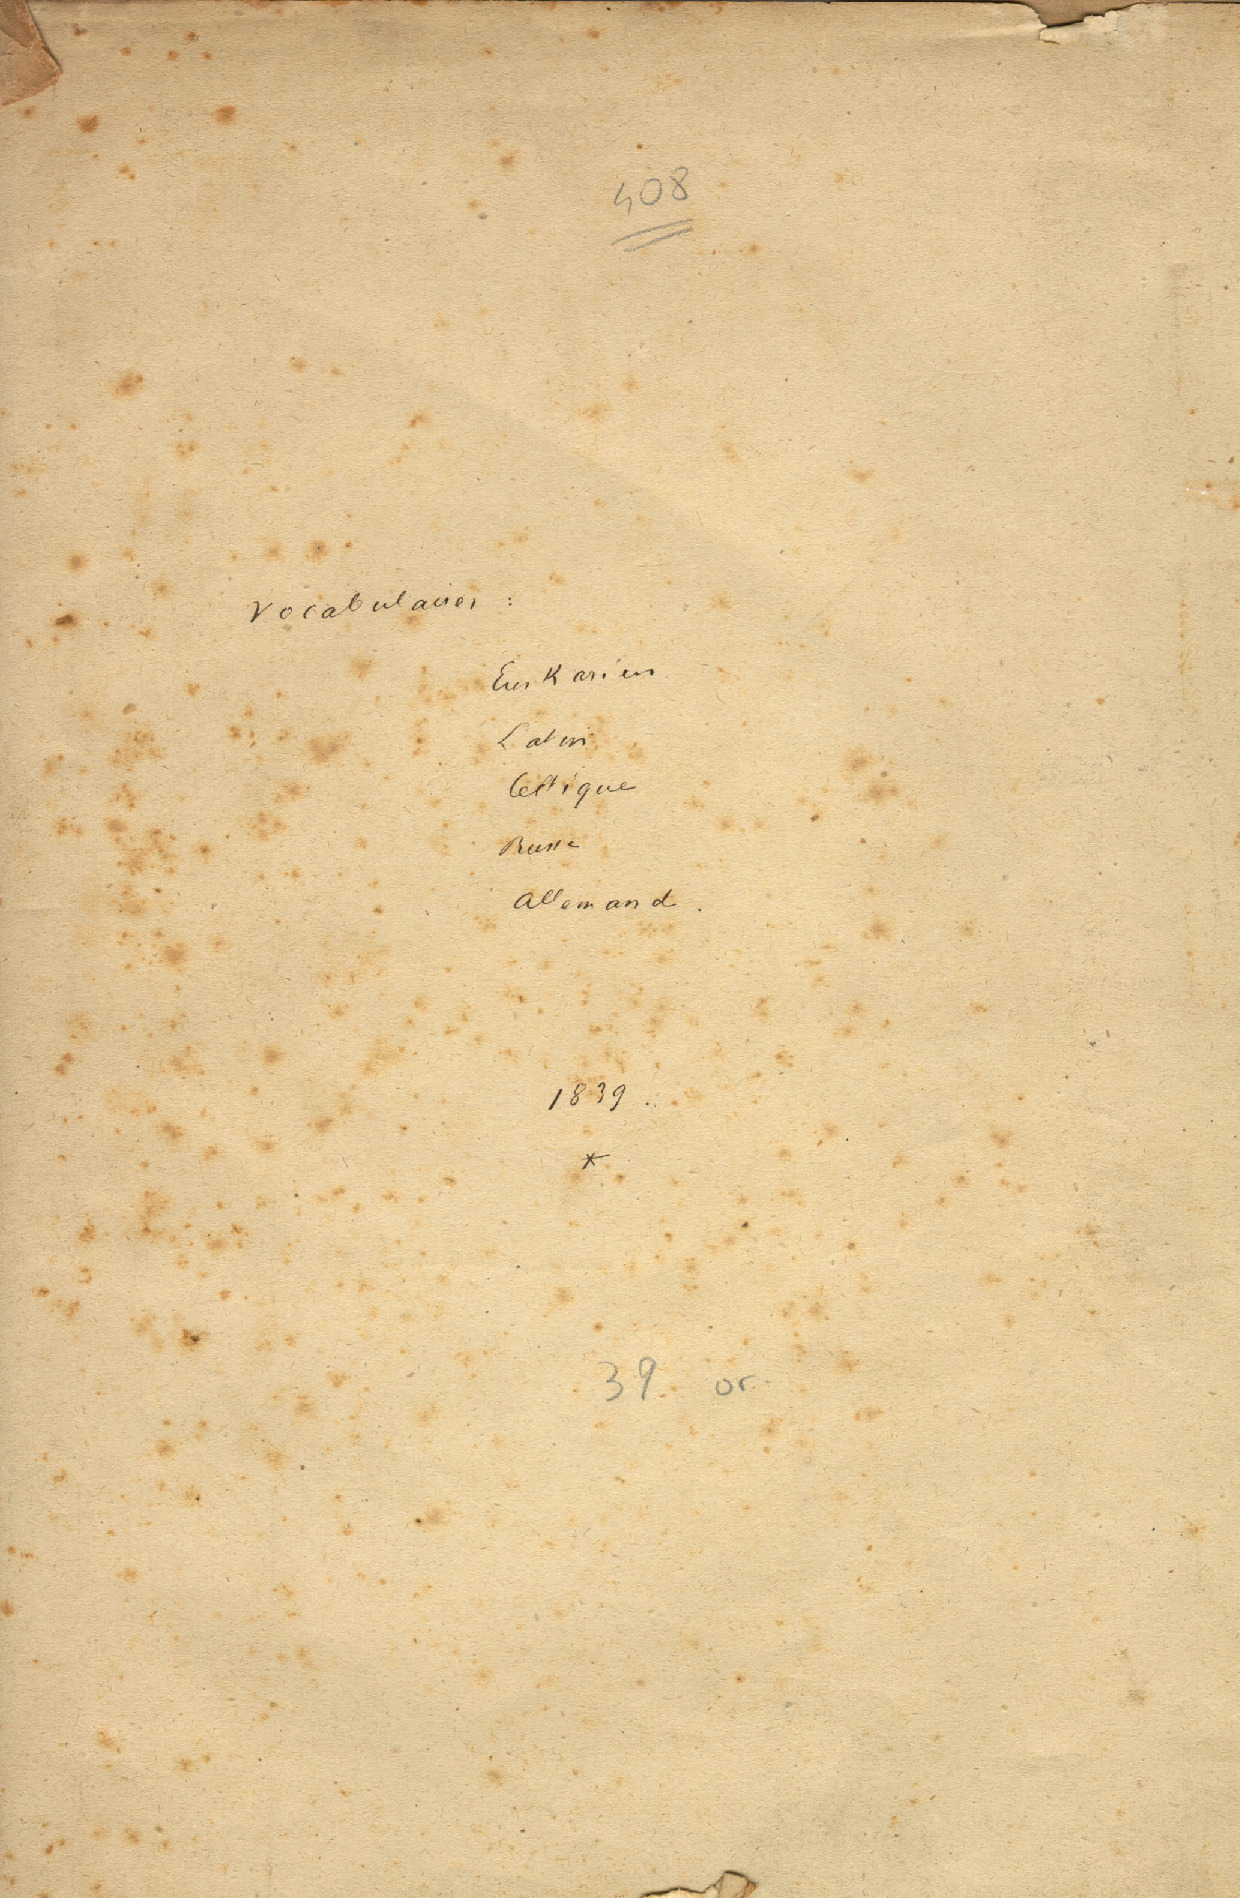 408
Vocabulaires :
Euskarien
Latin
Celtique
Russe
Allemand.
1839.
*
39 or